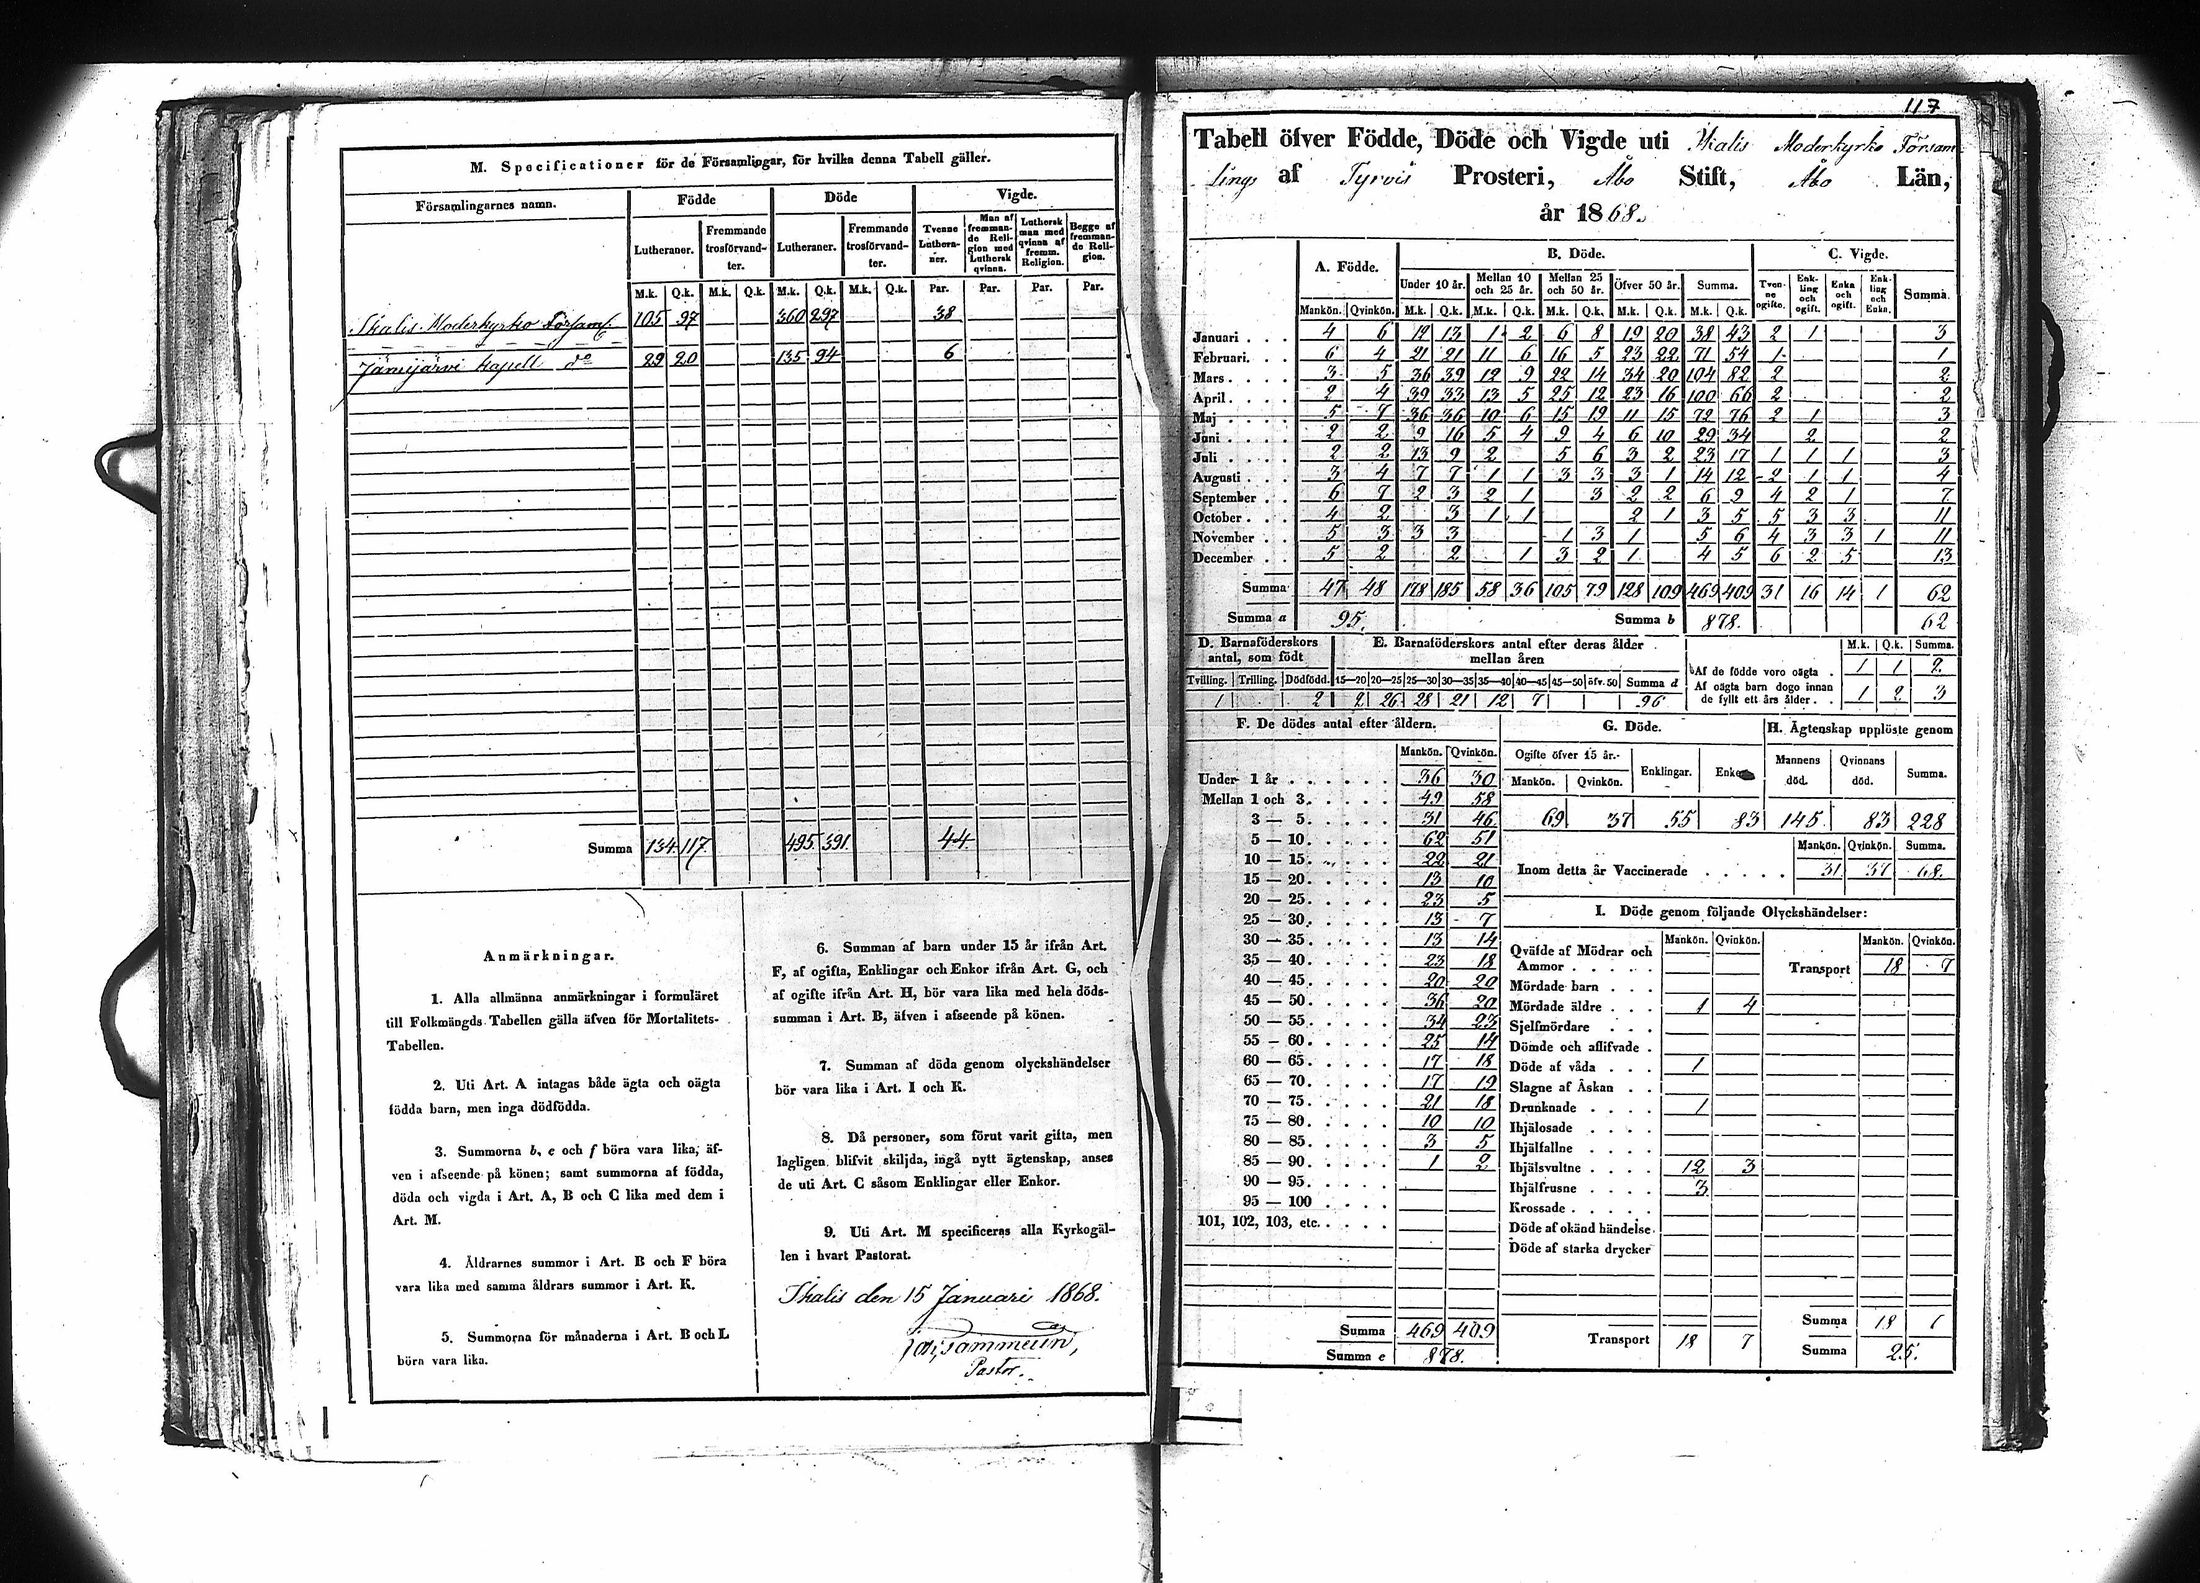 M. Specificationer för de Församlingar, för hvilka denna Tabell gäller.
Församlingarnes namn. Födde Döde Vigde.
Lutheraner. Fremmande trosförvandter. Lutheraner. Fremmande trosförvandter. Tvenne Lutheraner. Man af fremmande Religion med Luthersk qvinna. Luthersk man med qvinna af fremm. Religion. Begge af fremmande Religion.
M.k. Q.k. M.k. Q.k. M.k. Q.k. M.k. Q.k. Par. Par. Par. Par.
Ikalis Moderkyrko Församl. 105 97 360 297 38
Jämijärvi Kapell do 29 20 135 94 6
Summa 134 117 495 391 44
Anmärkningar.
1. Alla allmänna anmärkningar i formuläret
till Folkmängds Tabellen gälla äfven för Mortalitets-
Tabellen.
2. Uti Art. A intagas både ägta och oägta
födda barn, men inga dödfödda.
3. Summorna b, e och f böra vara lika, äf-
ven i afseende på könen; samt summorna af födda,
döda och vigda i Art. A, B och C lika med dem i
Art. M.
4. Åldrarnes summor i Art. B och F böra
vara lika med samma åldrars summor i Art. K.
5. Summorna för månaderna i Art. B och L
böra vara lika.
6. Summan af barn under 15 år ifrån Art.
F, af ogifta, Enklingar och Enkor ifrån Art. G, och
af ogifte ifrån Art. H, bör vara lika med hela döds-
summan i Art. B, äfven i afseende på könen.
7. Summan af döda genom olyckshändelser
bör vara lika i Art. I och K.
8. Då personer, som förut varit gifta, men
lagligen blifvit skiljda, ingå nytt ägtenskap, anses
de uti Art. C såsom Enklingar eller Enkor.
9. Uti Art. M specificeras alla Kyrkogäl-
len i hvart Pastorat.
Ikalis den 15 Januari 1868.
Pastor.
117
Tabell öfver Födde, Döde och Vigde uti Ikalis Moderkyrko Försam
lings af Tyrvis Prosteri, Åbo Stift, Åbo Län,
år 1868.
A. Födde. B. Döde. C. Vigde.
Under 10 år. Mellan 10 och 25 år. Mellan 25 och 50 år. Öfver 50 år. Summa. Tvenne ogifte. Enkling och ogift. Enka och ogift. Enkling och Enka. Summa.
Mankön. Qvinkön. M.k. Q.k. M.k. Q.k. M.k. Q.k. M.k. Q.k. M.k. Q.k.
Januari . . . 4 6 12 13 1 2 6 8 19 20 38 43 2 1 3
Februari. . . 6 4 21 21 11 6 16 5 23 22 71 54 1 1
Mars . . . . 3 5 36 39 12 9 22 14 34 20 104 82 2 2
April . . . . 2 4 39 33 13 5 25 12 23 16 100 66 2 2
Maj . . . . 5 7 36 36 10 6 15 19 11 15 72 76 2 1 3
Juni . . . . 2 2 9 16 5 4 9 4 6 10 29 34 2 2
Juli . . . . 2 2 13 9 2 5 6 3 2 23 17 1 1 1 3
Augusti . . . 3 4 7 7 1 1 3 3 3 1 14 12 2 1 1 4
September . . 6 7 2 3 2 1 3 2 2 6 9 4 2 1 7
October . . . 4 2 3 1 1 2 1 3 5 5 3 3 11
November . . 5 3 3 3 1 3 1 5 6 4 3 3 1 11
December . . 5 2 2 1 3 2 1 4 5 6 2 5 13
Summa 47 48 178 185 58 36 105 79 128 109 469 409 31 16 14 1 62
Summa a 95. Summa b 878. 62
D. Barnaföderskors antal, som födt E. Barnaföderskors antal efter deras ålder mellan åren M.k. Q.k. Summa.
Tvilling. Trilling. Dödfödd. 15—20 20—25 25—30 30—35 35—40 40—45 45—50 öfv. 50 Summa d
1 2 2 26 28 21 12 7 96
Af de födde voro oägta . 1 1 2.
Af oägta barn dogo innan
de fyllt ett års ålder . . 1 2 3
F. De dödes antal efter åldern.
Mankön. Qvinkön.
Under 1 år . . . . . . 36 30
Mellan 1 och 3. . . . . 49 58
3 — 5. . . . . 31 46
5 — 10. . . . . 62 51
10 — 15. . . . . 22 21
15 — 20. . . . . 13 10
20 — 25. . . . . 23 5
25 — 30. . . . . 13 7
30 — 35. . . . . 13 14
35 — 40. . . . . 23 18
40 — 45. . . . . 20 20
45 — 50. . . . . 36 20
50 — 55. . . . . 34 23
55 — 60. . . . . 25 14
60 — 65. . . . . 17 18
65 — 70. . . . . 17 19
70 — 75. . . . . 21 18
75 — 80. . . . . 10 10
80 — 85. . . . . 3 5
85 — 90. . . . . 1 2
90 — 95. . . . .
95 — 100 . . . .
101, 102, 103, etc. . . . .
Summa 469 409
Summa e 878.
G. Döde. H. Ägtenskap upplöste genom
Ogifte öfver 15 år. Enklingar. Mannens död. Qvinnans död. Summa.
Mankön. Qvinkön.
69 37 55 83 145 83 228
Mankön. Qvinkön. Summa.
Inom detta år Vaccinerade . . . . . 31 37 68.
I. Döde genom följande Olyckshändelser:
Mankön. Qvinkön. Mankön. Qvinkön.
Qväfde af Mödrar och
Ammor . . . . . Transport 18 7
Mördade barn . . .
Mördade äldre . . . 1 4
Sjelfmördare . . .
Dömde och aflifvade .
Döde af våda . . . 1
Slagne af Åskan . .
Drunknade . . . . 1
Ihjälosade . . . .
Ihjälfallne . . . .
Ihjälsvultne . . . . 12 3
Ihjälfrusne . . . . 3
Krossade . . . . .
Döde af okänd händelse.
Döde af starka drycker
Summa 18
Transport 18 7 Summa 25.